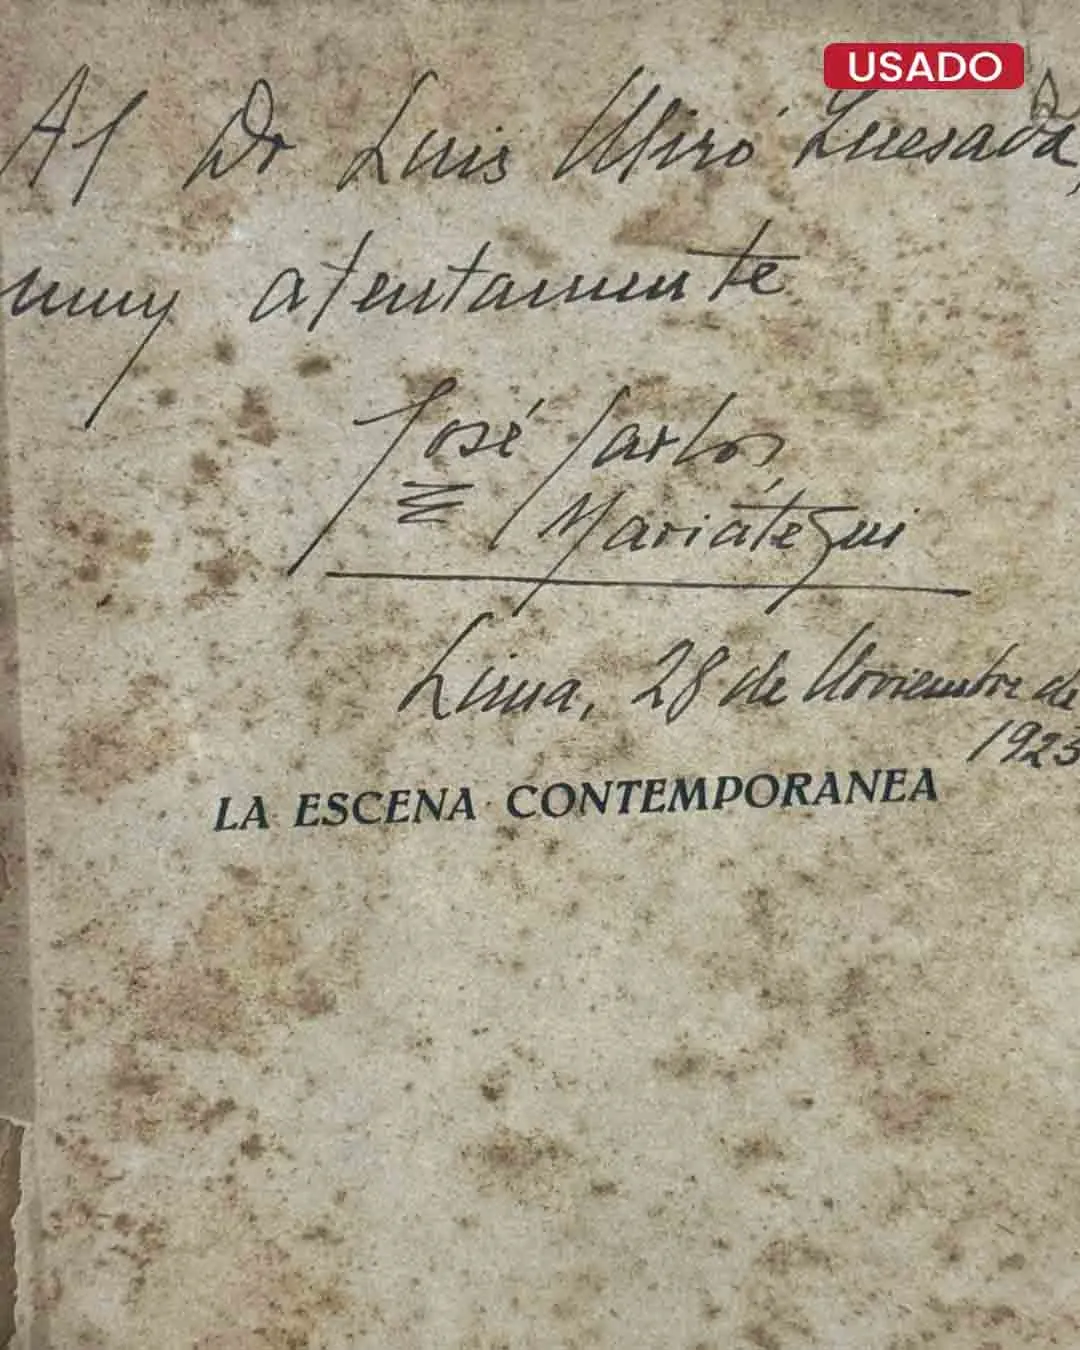 USADO
Al Dr Luis Miró Quesada,
muy atentamente
José Carlos
Mariátegui
Lima, 28 de Noviembre de
1925
LA ESCENA CONTEMPORANEA